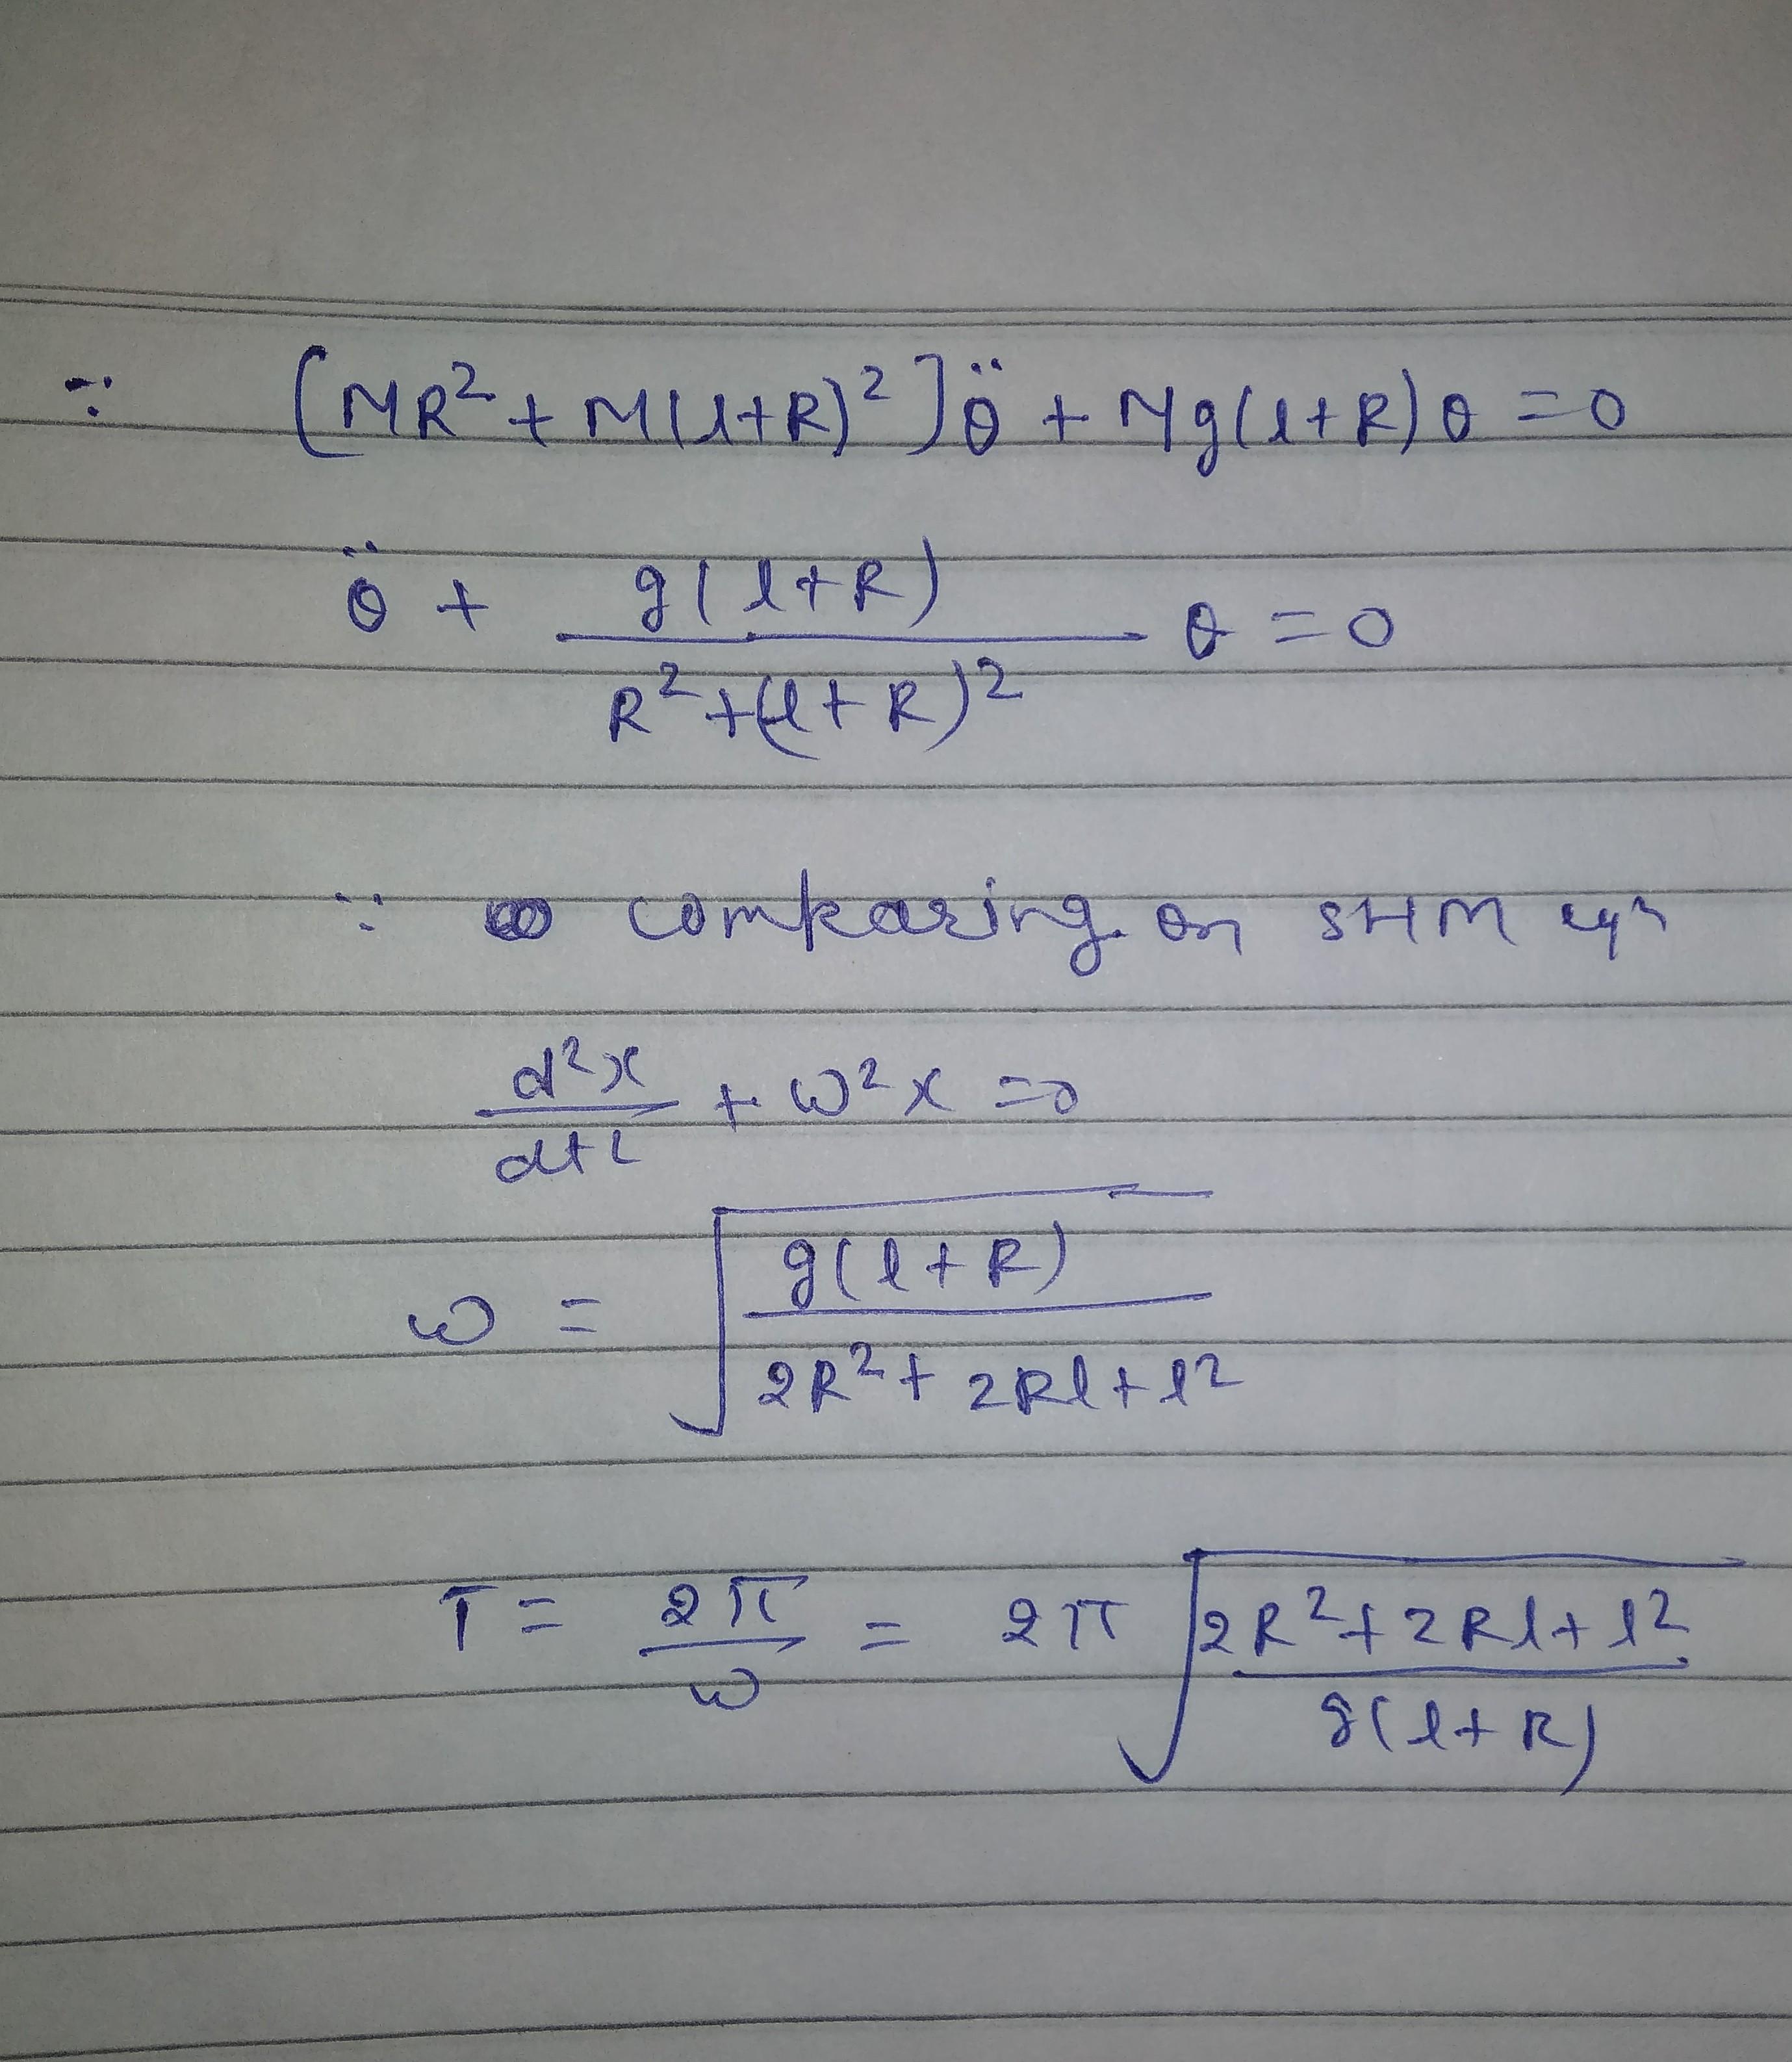 ∵ [MR² + M(l+R)²]θ̈ + Mg(l+R)θ = 0
θ̈ + g(l+R) / R²+(l+R)² θ = 0
∵ comparing on SHM eqn
d²x/dt² + ω²x = 0
ω = √(g(l+R) / 2R²+2Rl+l²)
T = 2π/ω = 2π √(2R²+2Rl+l² / g(l+R))